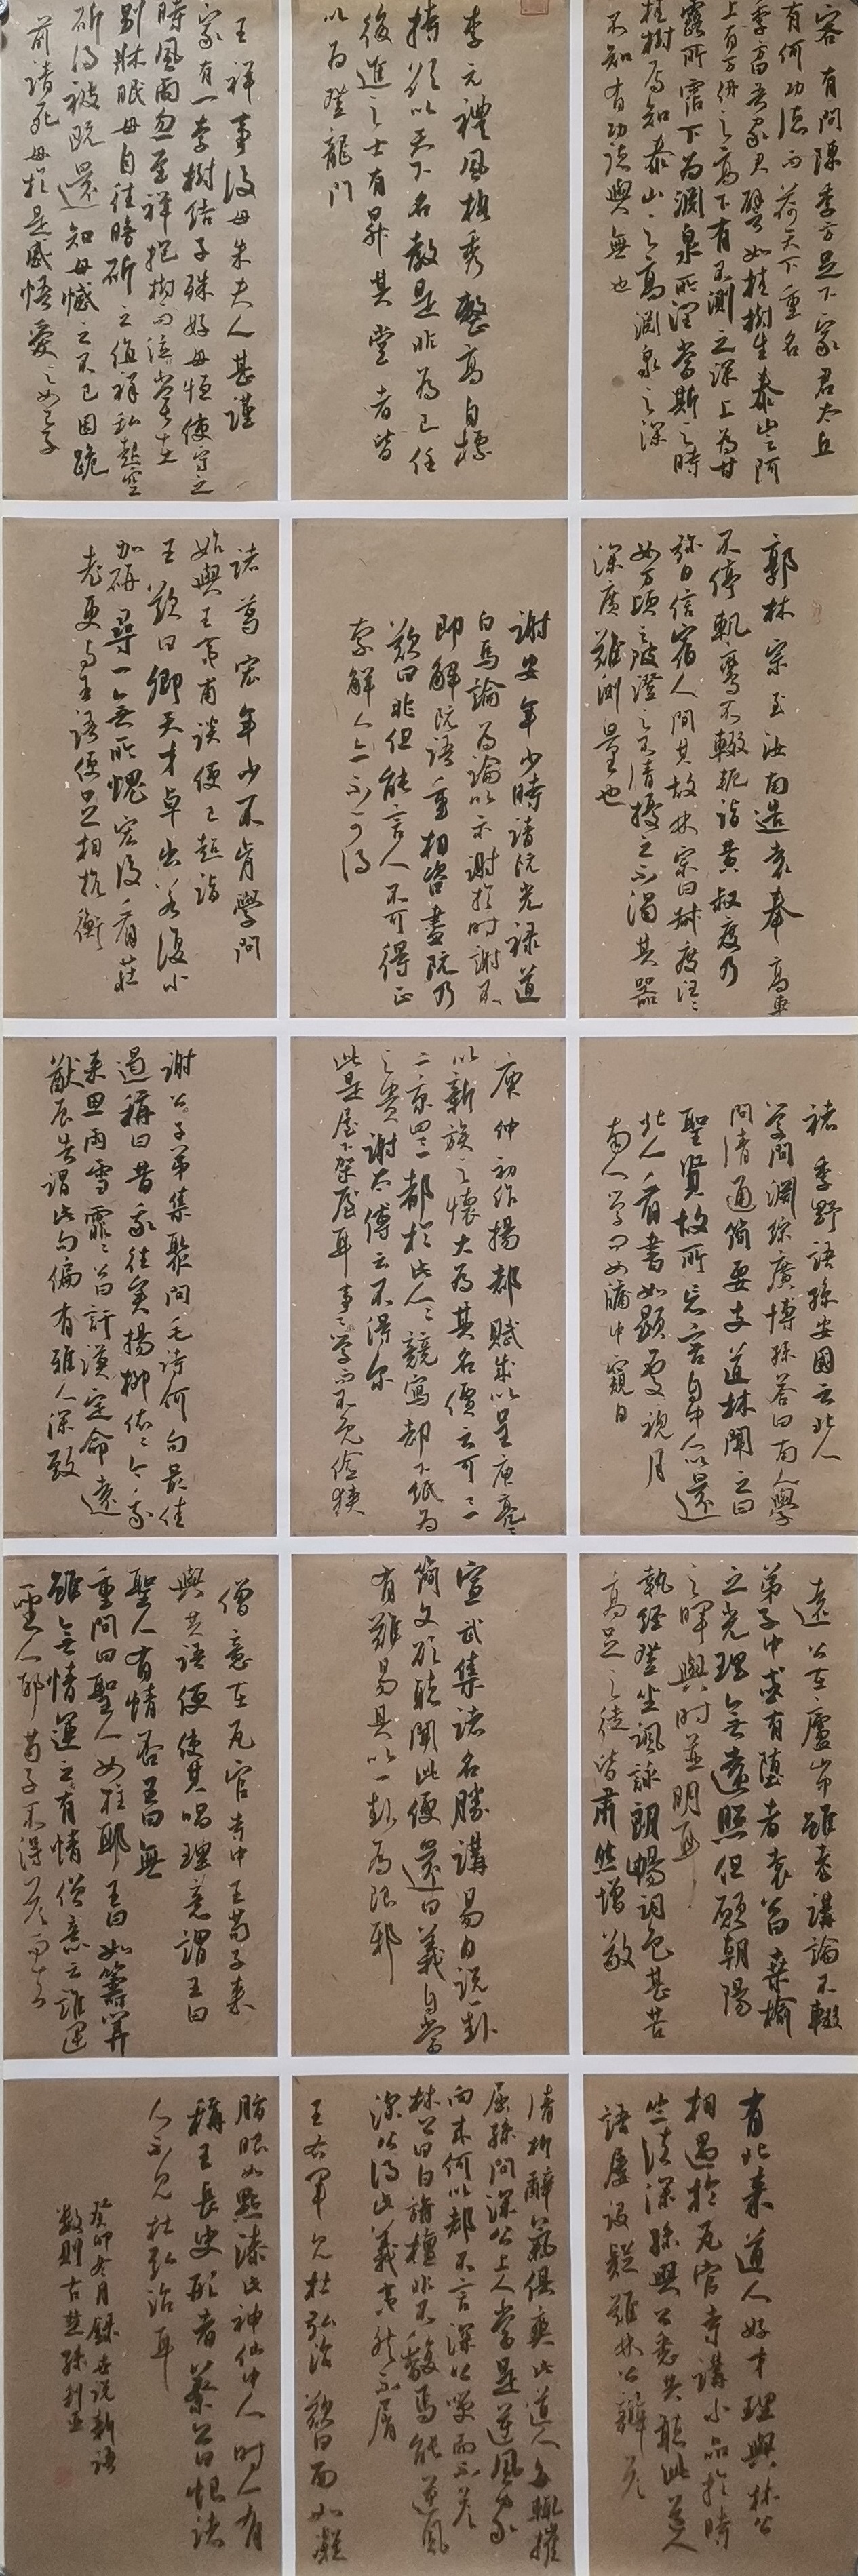 客有問陳季方足下家君太丘
有何功德而荷天下重名
季方曰吾家君譬如桂樹生泰山之阿
上有万仞之高下有不測之深上為甘
露所霑下為淵泉所潤當斯之時
桂樹焉知泰山之高淵泉之深
不知有功德與無也
李元禮風格秀整高自標
持欲以天下名教是非為己任
後進之士有昇其堂者皆
以為登龍門
王祥事後母朱夫人甚謹
家有一李樹結子殊好母恒使守之
時風雨忽至祥抱樹而泣嘗在
別牀眠母自往暗斫之值祥私起空
斫得被既還知母憾之不已因跪
前請死母於是感悟愛之如己子
郭林宗至汝南造袁奉高車
不停軌鸞不輟軛詣黃叔度乃
弥日信宿人問其故林宗曰叔度汪汪
如万頃之陂澄之不清擾之不濁其器
深廣難測量也
謝安年少時請阮光祿道
白馬論為論以示謝於時謝不
即解阮語重相咨盡阮乃
歎曰非但能言人不可得正
索解人亦不可得
諸葛宏年少不肯學問
始與王夷甫談便已超詣
王歎曰卿天才卓出若復小
加研尋一無所愧宏後看莊
老更与王語便足相抗衡
褚季野語孫安國云北人
學問淵綜廣博孫荅曰南人學
問清通簡要支道林聞之曰
聖賢故所忘言自中人以還
北人看書如顯處視月
南人學問如牖中窺日
庾仲初作揚都賦成以呈庾亮亮
以親族之懷大為其名價云可三
二京四三都於此人人競寫都下紙為
之貴謝太傅云不得尔
此是屋下架屋耳事事學而不免儉狹
謝公子弟集聚問毛詩何句最佳
遏稱曰昔我往矣楊柳依依今我
來思雨雪霏霏公曰訏謨定命遠
猷辰告謂此句偏有雅人深致
遠公在廬山中雖老講論不輟
弟子中或有墮者遠公曰桑榆
之光理無遠照但願朝陽
之暉與時並明耳
執經登坐諷誦朗暢詞色甚苦
高足之徒皆肅然增敬
宣武集諸名勝講易日說一卦
簡文欲聽聞此便還曰義自當
有難易其以一卦為限邪
僧意在瓦官寺中王苟子來
與共語便使其唱理意謂王曰
聖人有情否王曰無
重問曰聖人如柱耶王曰如籌算
雖無情運之有情僧意云誰運
聖人耶苟子不得荅而去
有北來道人好才理與林公
相遇於瓦官寺講小品於時
竺法深孫興公悉共聽此道人
語屢設疑難林公辯荅
清析辭氣俱爽此道人每輒摧
屈孫問深公上人當是逆風家
向來何以都不言深公笑而不荅
林公曰白旃檀非不馥焉能逆風
深公得此義夷然不屑
王右軍見杜弘治歎曰面如凝
脂眼如點漆此神仙中人時人有
稱王長史形者蔡公曰恨諸
人不見杜弘治耳
癸卯冬月錄世說新語
數則古燕孫利亚